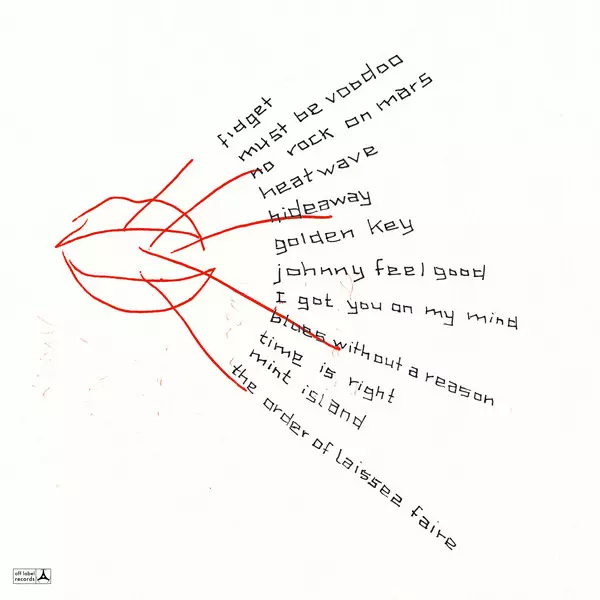 fidget
must be voodoo
no rock on mars
heatwave
hideaway
golden key
johnny feel good
I got you on my mind
blues without a reason
time is right
mint island
the order of laissez faire
off label
records